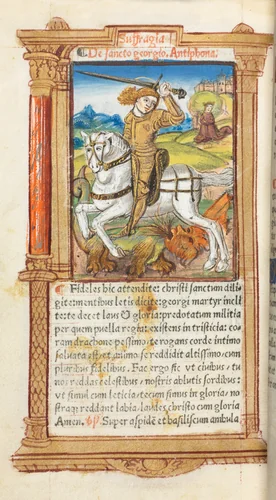 Suffragia
De sancto georgio. Antiphona.
Fideles hic attendite: christi sanctum dili
gite: mentibus letis dicite: georgi martyr incli
te: te decet laus & gloria: predotatum militia
per quem puella regia: existens in tristicia: co
ram drachone pessimo: te rogans corde intimo
saluata est: et animo se reddidit altissimo: cum
pluribus fidelibus. Fac ergo sic vt ciuibus / tu
nos reddas celestibus / nostris ablutis sordibus :
vt simul cum leticia: tecum simus in gloria / no
straq; reddant labia: laudes christo cum gloria
Amen. Super aspidē et basiliscum ambula